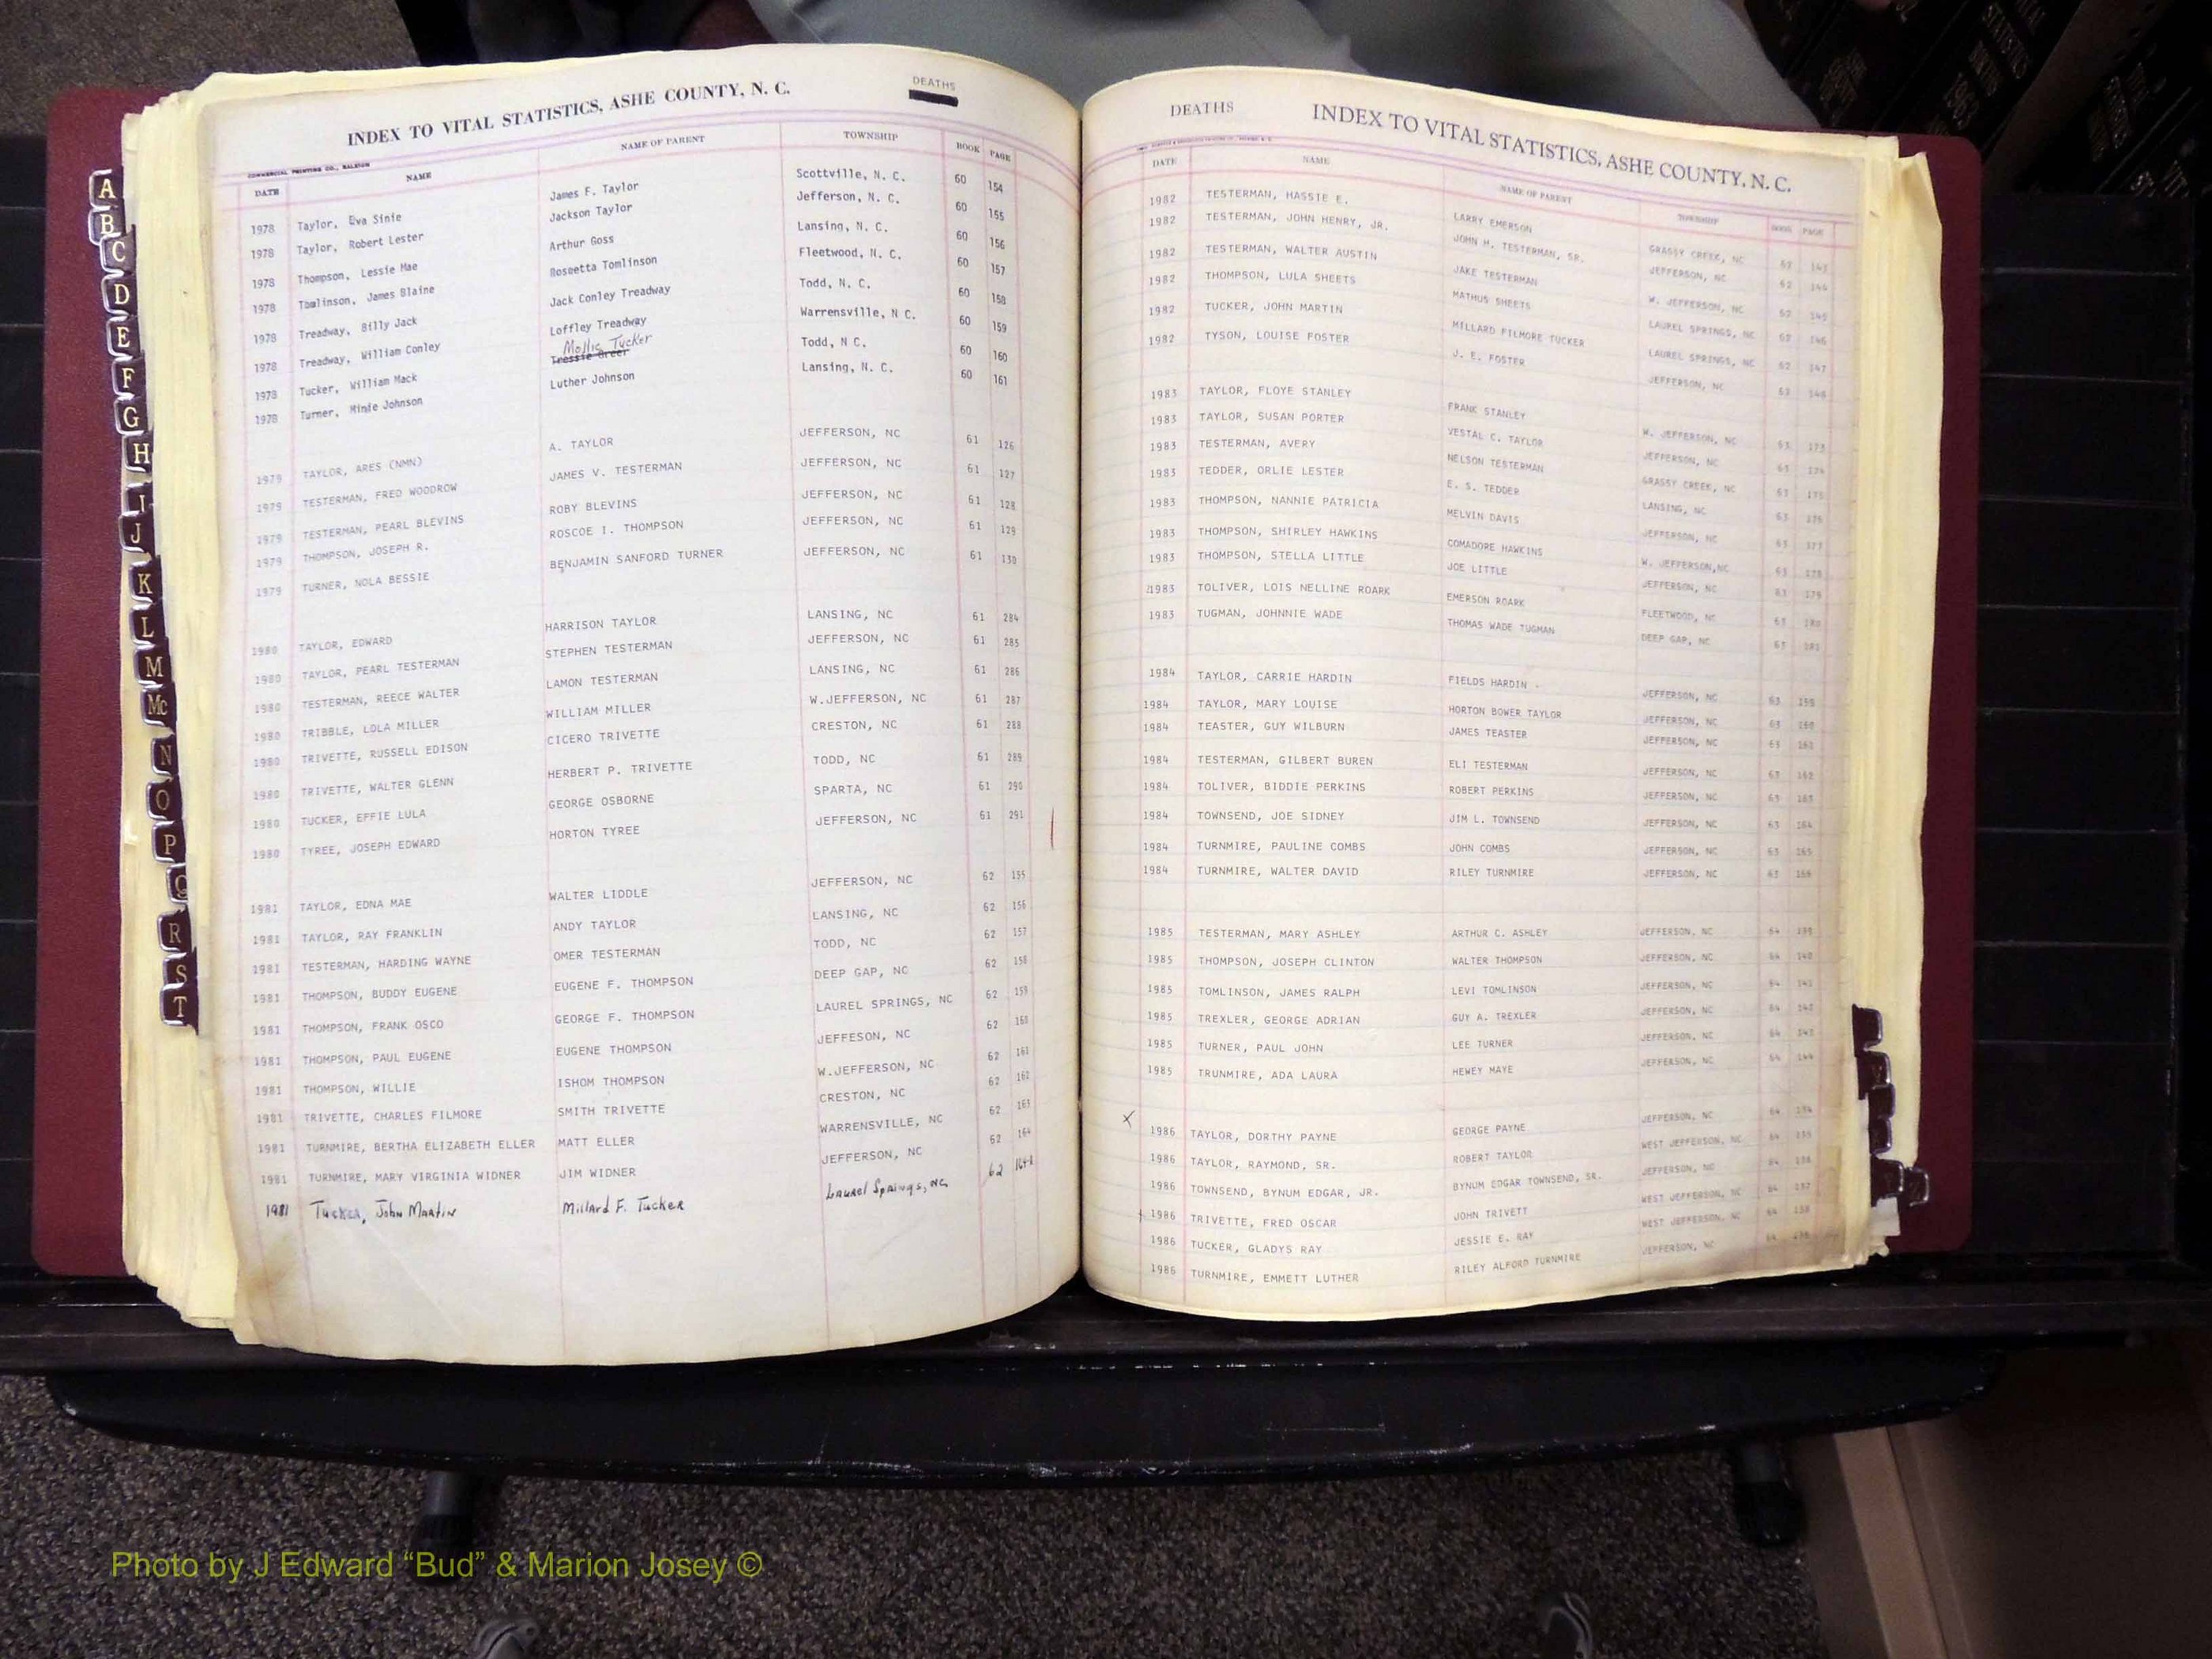 INDEX TO VITAL STATISTICS, ASHE COUNTY, N. C. DEATHS
COMMERCIAL PRINTING CO., RALEIGH
DATE NAME NAME OF PARENT TOWNSHIP BOOK PAGE
1978 Taylor, Eva Sinie James F. Taylor Scottville, N. C. 60 154
1978 Taylor, Robert Lester Jackson Taylor Jefferson, N. C. 60 155
1978 Thompson, Lessie Mae Arthur Goss Lansing, N. C. 60 156
1978 Tomlinson, James Blaine Roseetta Tomlinson Fleetwood, N. C. 60 157
1978 Treadway, Billy Jack Jack Conley Treadway Todd, N. C. 60 158
1978 Treadway, William Conley Loffley Treadway Warrensville, N C. 60 159
Mollie Tucker
1978 Tucker, William Mack Tressie Greer Todd, N C. 60 160
1978 Turner, Minie Johnson Luther Johnson Lansing, N. C. 60 161
1979 TAYLOR, ARES (NMN) A. TAYLOR JEFFERSON, NC 61 126
1979 TESTERMAN, FRED WOODROW JAMES V. TESTERMAN JEFFERSON, NC 61 127
1979 TESTERMAN, PEARL BLEVINS ROBY BLEVINS JEFFERSON, NC 61 128
1979 THOMPSON, JOSEPH R. ROSCOE I. THOMPSON JEFFERSON, NC 61 129
1979 TURNER, NOLA BESSIE BENJAMIN SANFORD TURNER JEFFERSON, NC 61 130
1980 TAYLOR, EDWARD HARRISON TAYLOR LANSING, NC 61 284
1980 TAYLOR, PEARL TESTERMAN STEPHEN TESTERMAN JEFFERSON, NC 61 285
1980 TESTERMAN, REECE WALTER LAMON TESTERMAN LANSING, NC 61 286
1980 TRIBBLE, LOLA MILLER WILLIAM MILLER W.JEFFERSON, NC 61 287
1980 TRIVETTE, RUSSELL EDISON CICERO TRIVETTE CRESTON, NC 61 288
1980 TRIVETTE, WALTER GLENN HERBERT P. TRIVETTE TODD, NC 61 289
1980 TUCKER, EFFIE LULA GEORGE OSBORNE SPARTA, NC 61 290
1980 TYREE, JOSEPH EDWARD HORTON TYREE JEFFERSON, NC 61 291
1981 TAYLOR, EDNA MAE WALTER LIDDLE JEFFERSON, NC 62 155
1981 TAYLOR, RAY FRANKLIN ANDY TAYLOR LANSING, NC 62 156
1981 TESTERMAN, HARDING WAYNE OMER TESTERMAN TODD, NC 62 157
1981 THOMPSON, BUDDY EUGENE EUGENE F. THOMPSON DEEP GAP, NC 62 158
1981 THOMPSON, FRANK OSCO GEORGE F. THOMPSON LAUREL SPRINGS, NC 62 159
1981 THOMPSON, PAUL EUGENE EUGENE THOMPSON JEFFESON, NC 62 160
1981 THOMPSON, WILLIE ISHOM THOMPSON W.JEFFERSON, NC 62 161
1981 TRIVETTE, CHARLES FILMORE SMITH TRIVETTE CRESTON, NC 62 162
1981 TURNMIRE, BERTHA ELIZABETH ELLER MATT ELLER WARRENSVILLE, NC 62 163
1981 TURNMIRE, MARY VIRGINIA WIDNER JIM WIDNER JEFFERSON, NC 62 164
1981 Tucker, John Martin Millard F. Tucker Laurel Springs, NC 62
DEATHS INDEX TO VITAL STATISTICS, ASHE COUNTY, N. C.
DATE NAME NAME OF PARENT TOWNSHIP BOOK PAGE
1982 TESTERMAN, HASSIE E. LARRY EMERSON GRASSY CREEK, NC 62 143
1982 TESTERMAN, JOHN HENRY, JR. JOHN H. TESTERMAN, SR. JEFFERSON, NC 62 144
1982 TESTERMAN, WALTER AUSTIN JAKE TESTERMAN W. JEFFERSON, NC 62 145
1982 THOMPSON, LULA SHEETS MATHUS SHEETS LAUREL SPRINGS, NC 62 146
1982 TUCKER, JOHN MARTIN MILLARD FILMORE TUCKER LAUREL SPRINGS, NC 62 147
1982 TYSON, LOUISE FOSTER J. E. FOSTER JEFFERSON, NC 62 148
1983 TAYLOR, FLOYE STANLEY FRANK STANLEY W. JEFFERSON, NC 63 173
1983 TAYLOR, SUSAN PORTER VESTAL C. TAYLOR JEFFERSON, NC 63 174
1983 TESTERMAN, AVERY NELSON TESTERMAN GRASSY CREEK, NC 63 175
1983 TEDDER, ORLIE LESTER E. S. TEDDER LANSING, NC 63 176
1983 THOMPSON, NANNIE PATRICIA MELVIN DAVIS JEFFERSON, NC 63 177
1983 THOMPSON, SHIRLEY HAWKINS COMADORE HAWKINS W. JEFFERSON,NC 63 178
1983 THOMPSON, STELLA LITTLE JOE LITTLE JEFFERSON, NC 63 179
1983 TOLIVER, LOIS NELLINE ROARK EMERSON ROARK FLEETWOOD, NC 63 180
1983 TUGMAN, JOHNNIE WADE THOMAS WADE TUGMAN DEEP GAP, NC 63 181
1984 TAYLOR, CARRIE HARDIN FIELDS HARDIN JEFFERSON, NC 63 159
1984 TAYLOR, MARY LOUISE HORTON BOWER TAYLOR JEFFERSON, NC 63 160
1984 TEASTER, GUY WILBURN JAMES TEASTER JEFFERSON, NC 63 161
1984 TESTERMAN, GILBERT BUREN ELI TESTERMAN JEFFERSON, NC 63 162
1984 TOLIVER, BIDDIE PERKINS ROBERT PERKINS JEFFERSON, NC 63 163
1984 TOWNSEND, JOE SIDNEY JIM L. TOWNSEND JEFFERSON, NC 63 164
1984 TURNMIRE, PAULINE COMBS JOHN COMBS JEFFERSON, NC 63 165
1984 TURNMIRE, WALTER DAVID RILEY TURNMIRE JEFFERSON, NC 63 166
1985 TESTERMAN, MARY ASHLEY ARTHUR C. ASHLEY JEFFERSON, NC 64 139
1985 THOMPSON, JOSEPH CLINTON WALTER THOMPSON JEFFERSON, NC 64 140
1985 TOMLINSON, JAMES RALPH LEVI TOMLINSON JEFFERSON, NC 64 141
1985 TREXLER, GEORGE ADRIAN GUY A. TREXLER JEFFERSON, NC 64 142
1985 TURNER, PAUL JOHN LEE TURNER JEFFERSON, NC 64 143
1985 TRUNMIRE, ADA LAURA HEWEY MAYE JEFFERSON, NC 64 144
x 1986 TAYLOR, DORTHY PAYNE GEORGE PAYNE JEFFERSON, NC 64
1986 TAYLOR, RAYMOND, SR. ROBERT TAYLOR WEST JEFFERSON, NC 64
1986 TOWNSEND, BYNUM EDGAR, JR. BYNUM EDGAR TOWNSEND, SR. JEFFERSON, NC 64
1986 TRIVETTE, FRED OSCAR JOHN TRIVETT WEST JEFFERSON, NC 64
1986 TUCKER, GLADYS RAY JESSIE E. RAY WEST JEFFERSON, NC 64
1986 TURNMIRE, EMMETT LUTHER RILEY ALFORD TURNMIRE JEFFERSON, NC
A
B
C
D
E
F
G
H
I
J
K
L
M
Mc
N
O
P
Q
R
S
T
Photo by J Edward “Bud” & Marion Josey ©